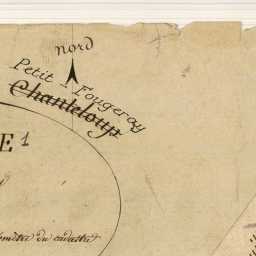 nord
Petit Fougeray
Chanteloup
E 1
du cadastre